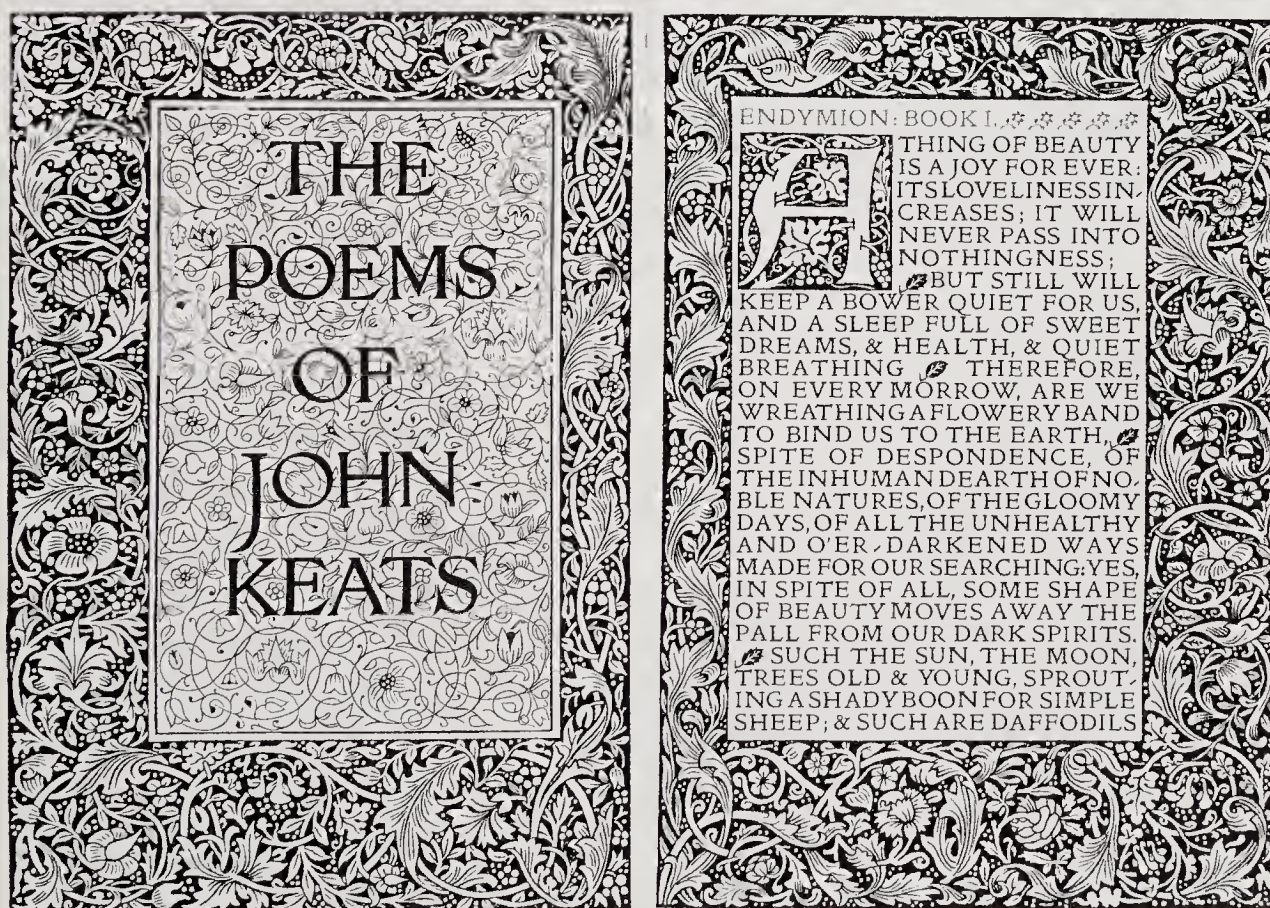 THE
POEMS
OF
JOHN
KEATS
ENDYMION: BOOK I.
A THING OF BEAUTY
IS A JOY FOR EVER:
ITS LOVELINESS IN-
CREASES; IT WILL
NEVER PASS INTO
NOTHINGNESS;
BUT STILL WILL
KEEP A BOWER QUIET FOR US,
AND A SLEEP FULL OF SWEET
DREAMS, & HEALTH, & QUIET
BREATHING THEREFORE,
ON EVERY MORROW, ARE WE
WREATHING A FLOWERY BAND
TO BIND US TO THE EARTH,
SPITE OF DESPONDENCE, OF
THE INHUMAN DEARTH OF NO-
BLE NATURES, OF THE GLOOMY
DAYS, OF ALL THE UNHEALTHY
AND O'ER-DARKENED WAYS
MADE FOR OUR SEARCHING: YES,
IN SPITE OF ALL, SOME SHAPE
OF BEAUTY MOVES AWAY THE
PALL FROM OUR DARK SPIRITS.
SUCH THE SUN, THE MOON,
TREES OLD & YOUNG, SPROUT-
ING A SHADY BOON FOR SIMPLE
SHEEP; & SUCH ARE DAFFODILS